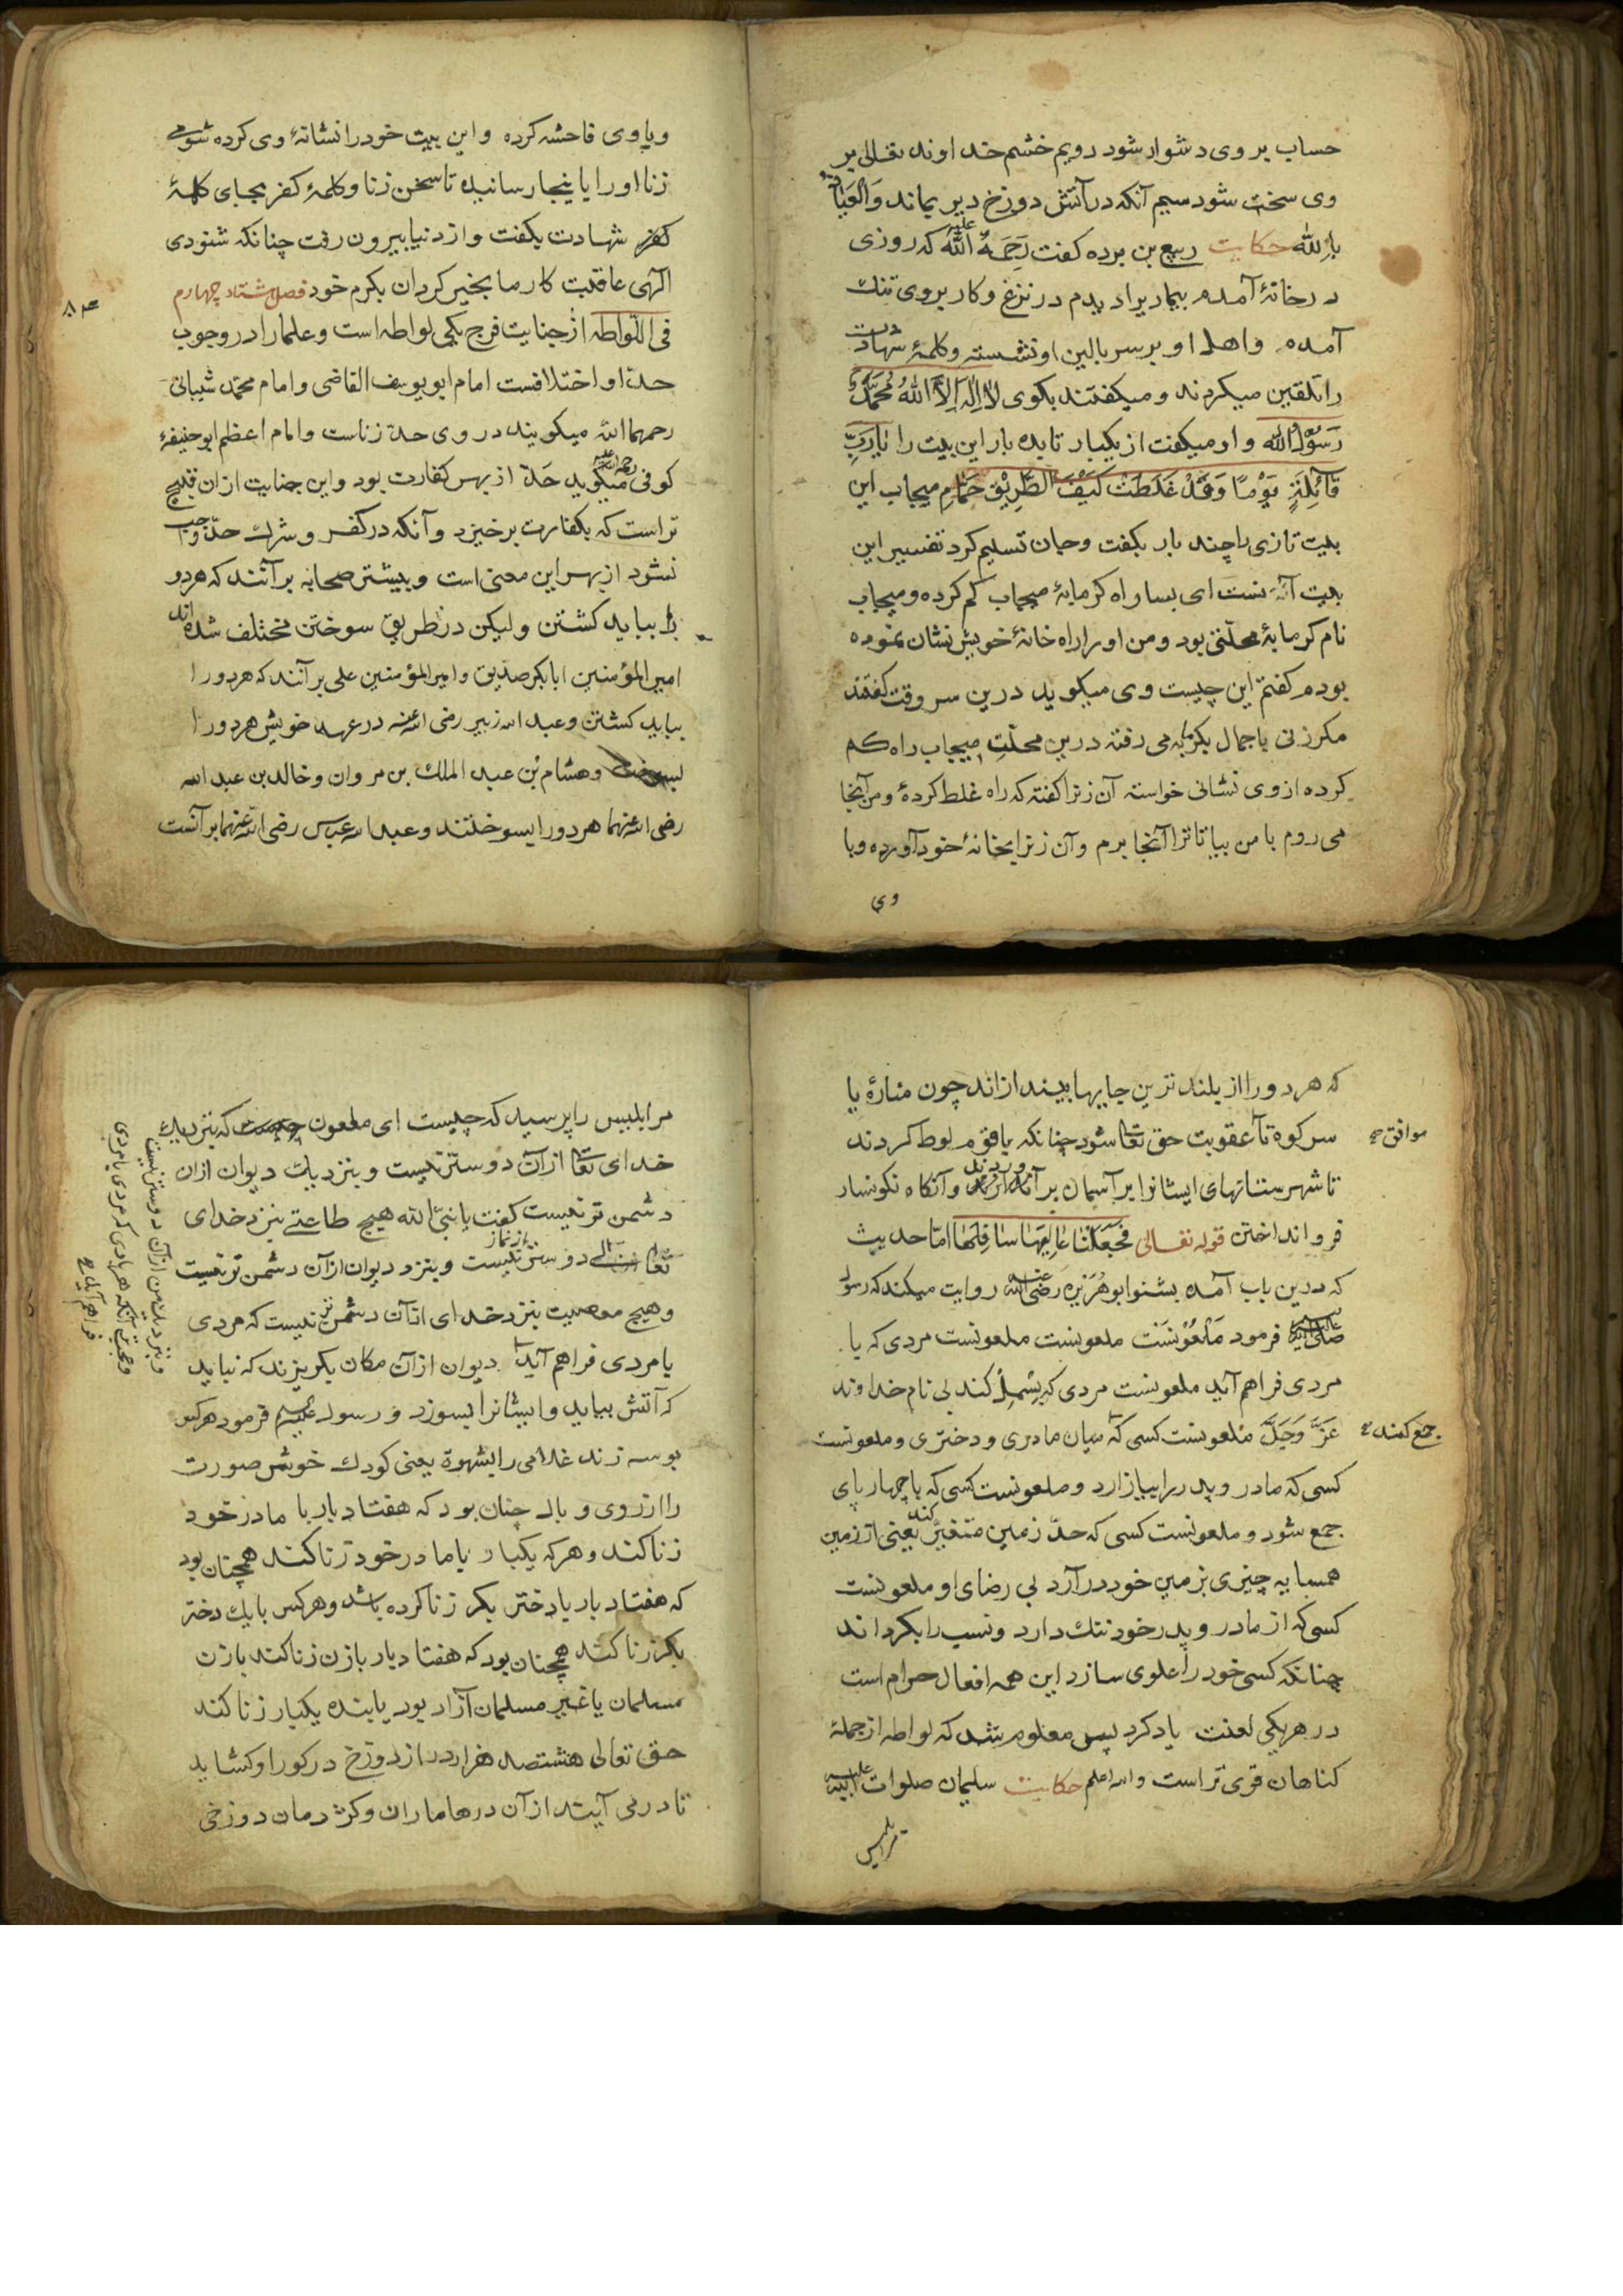 حساب بر وی دشوار شود دویم خشم خداوند تعالی بر
وی سخت شود سیم آنکه در آتش دوزخ دیر بماند وَالْعِیَاذُ
بِاللّٰه حکایت ربیع بن برده گفت رَحِمَهُ اللّٰه علیه که روزی
در خانهٔ آمدم بیماریرا دیدم در نزع و کار بر وی تنگ
آمده و اهل او بر سر بالین او نشسته و کلمهٔ شهادت
را تلقین میکردند و میگفتند بگوی لَا اِلٰهَ اِلَّا اللّٰهُ مُحَمَّدٌ
رَسُوْلُ اللّٰه و او میگفت از یکبار تا ده بار این بیت را یَارَبِّ
قَائِلَةٍ یَوْمًا وَقَدْ غَلَطَتْ کَیْفَ الطَّرِیْق حَمَّامِ میجاب این
بیت تازی را چند بار بگفت و جان تسلیم کرد تفسیر این
بیت آنست ای بسا راه گرمابهٔ میجاب گم کرده و میجاب
نام گرمابهٔ محلّتی بود و من او را راه خانهٔ خویش نشان نموده
بودم گفتم این چیست وی میگوید درین سر وقت گفتند
مگر زنی با جمال بگرمابه می رفته درین محلّت میجاب راه گم
کرده از وی نشانی خواسته آن زنرا گفته که راه غلط کردهٔ و من آنجا
می روم با من بیا تا ترا آنجا برم و آن زنرا بخانهٔ خود آورده و با
وی
وباوی فاحشه کرده و این بیت خود را نشانهٔ وی کرده شومی
زنا او را باینجا رسانیده تا سخن زنا و کلمهٔ کفر بجای کلمهٔ
شهادت بگفت و از دنیا بیرون رفت چنانکه شنودی
الٓهی عاقبت کار ما بخیر گردان بکرم خود فصل هشتاد چهارم
فی اللّواطه از جنایت فرج یکی لواطه است و علما را در وجوب
حدّ او اختلافست امام ابو یوسف القاضی و امام محمّد شیبانی
رحمهما اللّه میگویند در وی حدّ زناست و امام اعظم ابو حنیفهٔ
کوفی رحمة الله علیه میگوید حَدّ از بهر کفارت بود و این جنایت از ان قبیح
تر است که بکفارت برخیزد و آنکه در کفر و شرک حدّ واجب
نشود از بهر این معنی است و بیشتر صحابه بر آنند که هر دو
را بباید کشتن و لیکن در طریق سوختن مختلف شده اند
امیر المؤمنین ابابکر صدّیق و امیر المؤمنین علی بر آنند که هر دو را
بباید کشتن و عبد الله زبیر رضی الله عنه در عهد خویش هر دو را
و هشام بن عبد الملک بن مروان و خالد بن عبد الله
رضی الله عنهما هر دو را بسوختند و عبد الله عباس رضی الله عنهما بر آنست
که هر دو را از بلند ترین جایها بیندازند چون منارهٔ یا
سر کوه تا عقوبت حق تعا شود چنانکه با قوم لوط کردند
موافق
تا شهرستانهای ایشانرا بر آسمان بر آوردند و آنگاه نکونسار
فرو انداختن قوله تعالی فَجَعَلْنَا عَالِیَهَا سَافِلَهَا امّا حدیث
که درین باب آمده بشنو ابو هُرَیْرِه رَضِیَ اللّٰه عنه روایت میکند که رسول
فرمود مَلْعُوْنَسْت ملعونست ملعونست مردی که با
مردی فراهم آید ملعونست مردی که بِسْمِلْ کند بی نام خداوند
عَزَّ وَجَلَّ مَلعونست کسی که میان مادری و دختری و ملعونست
جمع کند
کسی که مادر و پدر را بیازارد و ملعونست کسی که با چهار پای
جمع شود و ملعونست کسی که حدّ زمین متغیّر کند یعنی از زمین
همسایه چیزی بزمین خود در آرد بی رضای او ملعونست
کسی که از مادر و پدر خود ننک دارد و نسب را بگرداند
چنانکه کسی خود را علوی سازد این همه افعال حرام است
در هر یکی لعنت یاد کرد پس معلوم شد که لواطه از جملهٔ
گناهان قوی تر است والله اعلم حکایت سلیمان صلوات الله علیه
مر ابلیس
مر ابلیس را پرسید که چیست ای ملعون که بنزدیک
خدای تعا از آن دوستتر نیست و بنزدیک دیوان ازان
دشمن تر نیست گفت یا نبیَّ اللّٰه هیچ طاعتی بنزد خدای
تعا از نماز دوستر نیست و بنزد دیوان از آن دشمن تر نیست
و هیچ معصیت بنزد خدای از آن دشمن تر نیست که مردی
با مردی فراهم آید دیوان از آن مکان بگریزند که نباید
که آتش بیاید و ایشانرا بسوزد و رسول علیه السلام فرمود هر کس
بوسه زند غلامی را بشهوة یعنی کودک خوش صورت
را از روی و بال چنان بود که هفتاد بار با مادر خود
زنا کند و هر که یکبار با مادر خود زنا کند همچنان بود
که هفتاد بار با دختر بکر زنا کرده باشد و هر کس با یک دختر
بکر زنا کند همچنان بود که هفتاد بار با زن زنا کند با زن
مسلمان یا غیر مسلمان آزاد بود یا بنده یکبار زنا کند
حق تعالی هشتصد هزار در از دوزخ در گور او گشاید
تا در می آیند از آن درها ماران و کژدمان دوزخی
و بنزدیک من از آن دوستر نیست
فراهم آید